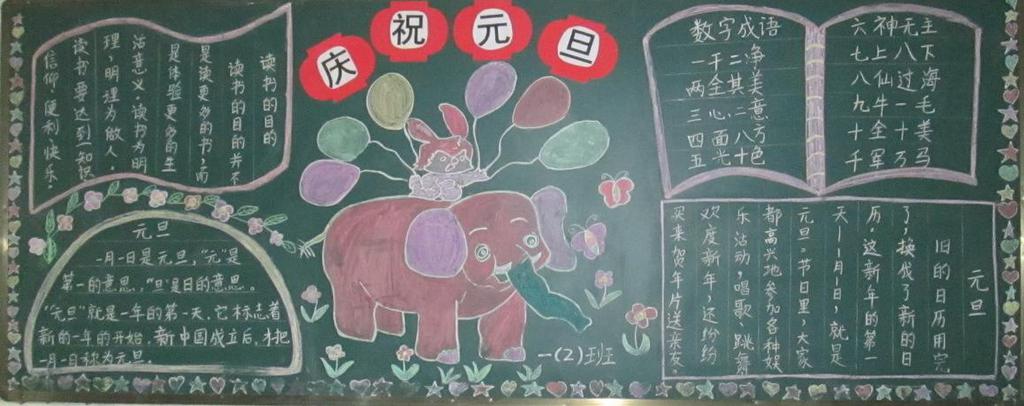 庆祝元旦
读书的目的
读书的目的并不
是读更多的书,而
是体验更多的生
活意义。读书为明
理,明理为做人
读书要达到知识
信仰,便利快乐。
元旦
一月一日是元旦,"元"是
第一的意思,"旦"是日的意思。
"元旦"就是一年的第一天。它标志着
新的一年的开始,新中国成立后,才把
一月一日称为元旦。
一(2)班
数字成语
一干二净
两全其美
三心二意
四面八方
五光十色
六神无主
七上八下
八仙过海
九牛一毛
十全十美
千军万马
元旦
旧的日历用完
了,换了新的日
历。这新年的第一
天——1月1日,就是
元旦。节日里,大家
都高兴地参加各种娱
乐活动,唱歌、跳舞
欢度新年,还纷纷
买来贺年片送亲友。